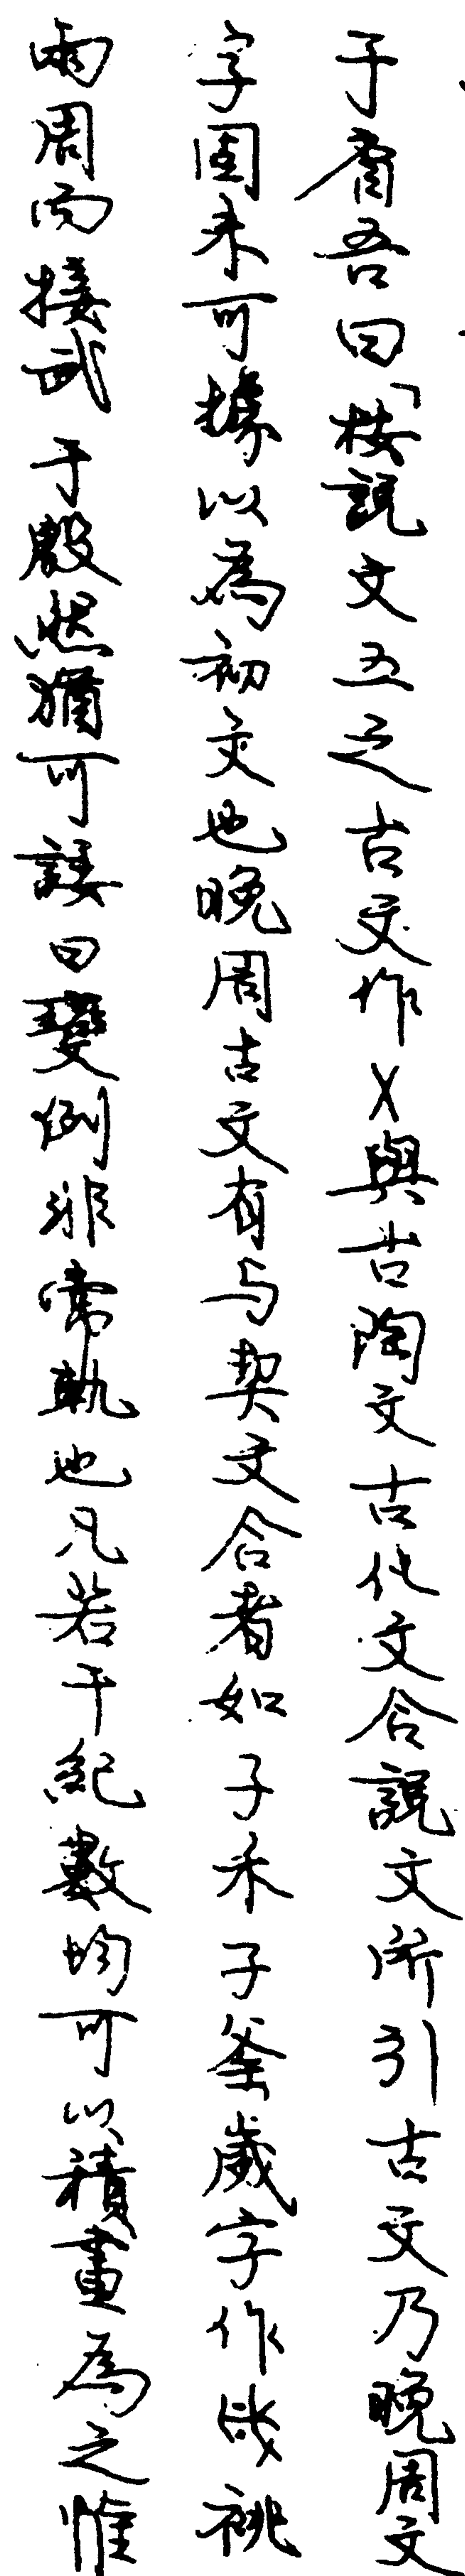 于省吾曰「按說文五之古文作X與古陶文古化文合說文所引古文乃晚周文
字固未可據以為初文也晚周古文有与契文合者如子禾子釜歲字作𢧀祧
兩周而接武于殷然猶可諉曰變例非常軌也凡若干紀數均可以積畫為之惟